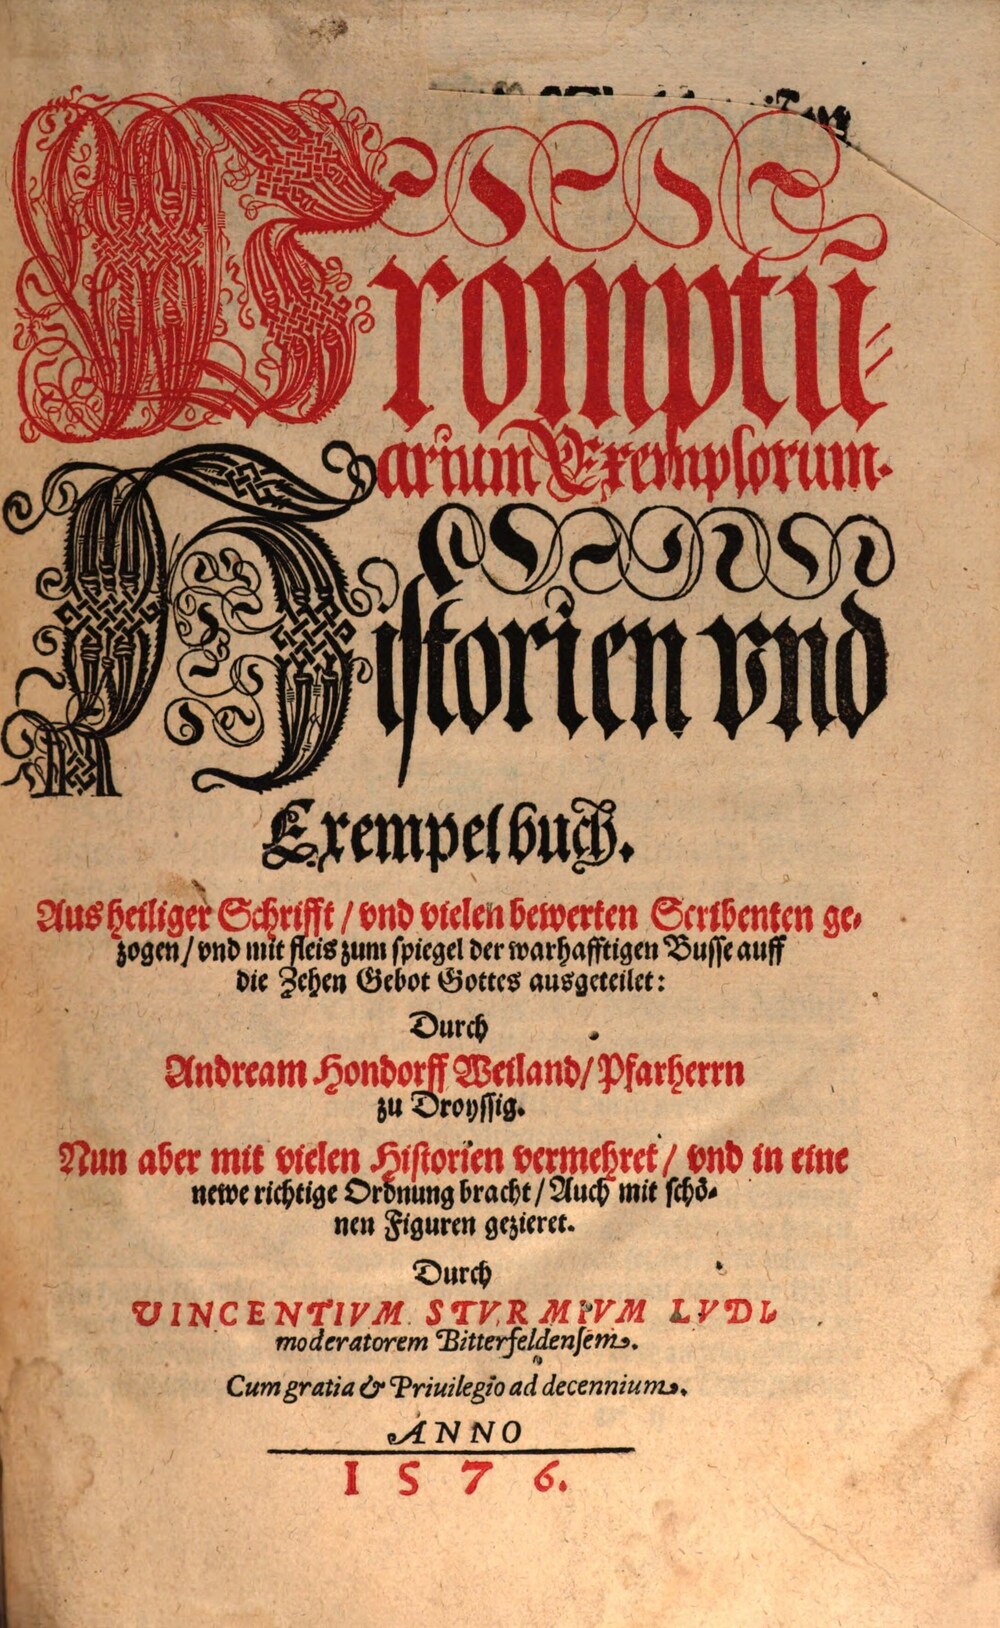 Promptu⸗
arium Exemplorum.
Historien vnd
Exempelbuch.
Aus heiliger Schrifft / vnd vielen bewerten Scribenten ge⸗
zogen / vnd mit fleis zum spiegel der warhafftigen Busse auff
die Zehen Gebot Gottes ausgeteilet:
Durch
Andream Hondorff Weiland / Pfarherrn
zu Droyssig.
Nun aber mit vielen Historien vermehret / vnd in eine
newe richtige Ordnung bracht / Auch mit schö⸗
nen Figuren gezieret.
Durch
VINCENTIVM STVRMIVM LVDI
moderatorem Bitterfeldensem.
Cum gratia & Priuilegio ad decennium.
ANNO
1576.